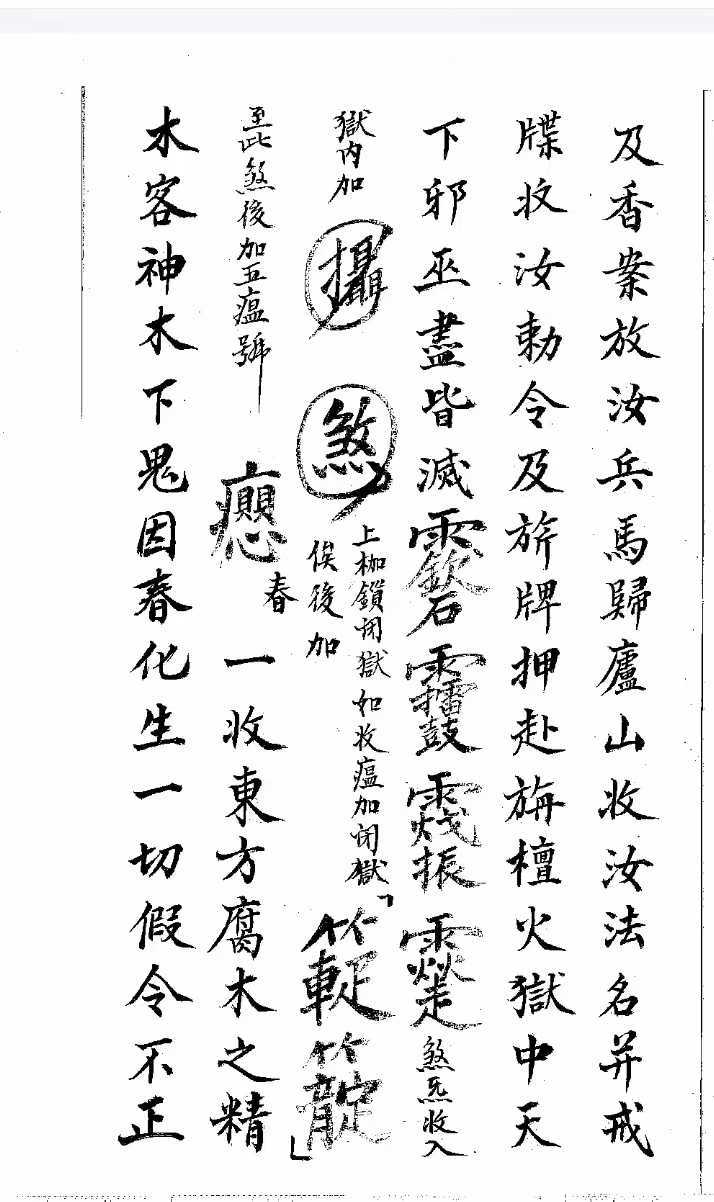 及香案放汝兵馬歸廬山收汝法名并戒
牒收汝勅令及旂牌押赴旃檀火獄中天
下邪巫盡皆滅
煞炁收入
獄内加 攝 煞
上枷鎖閉獄如收瘟加閉獄
俟後加
至此煞後加五瘟號
春 一收東方腐木之精
木客神木下鬼因春化生一切假令不正